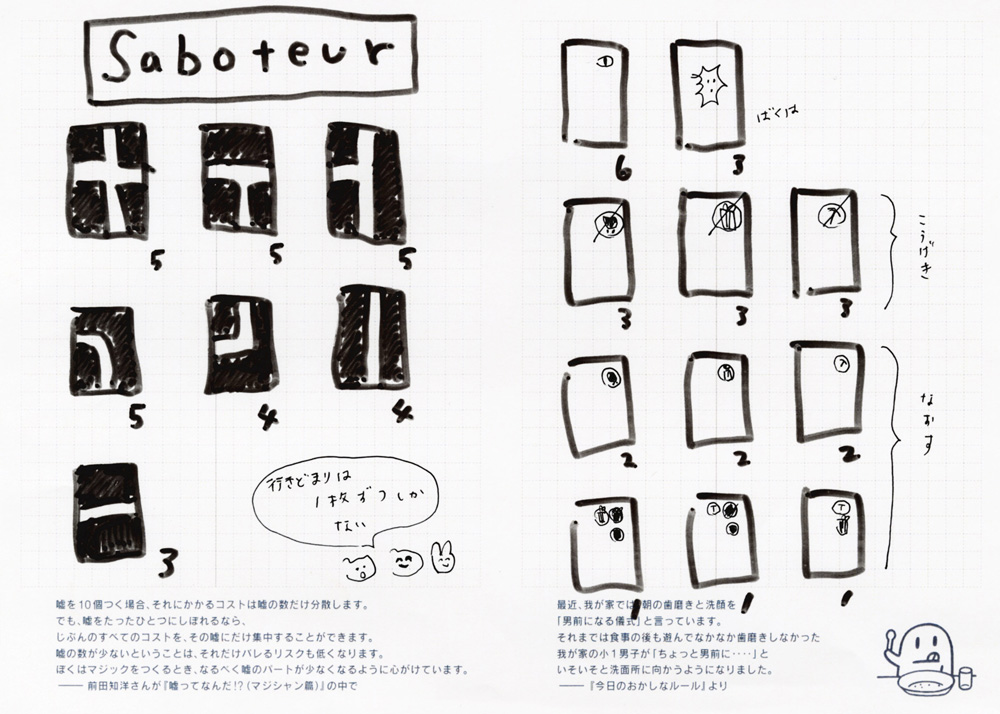 Saboteur
5
5
5
5
4
4
3
行きどまりは
1枚ずつしか
ない
嘘を10個つく場合、それにかかるコストは嘘の数だけ分散します。
でも、嘘をたったひとつにしぼれるなら、
じぶんのすべてのコストを、その嘘にだけ集中することができます。
嘘の数が少ないということは、それだけバレるリスクも低くなります。
ぼくはマジックをつくるとき、なるべく嘘のパートが少なくなるように心がけています。
—— 前田知洋さんが『嘘ってなんだ!?(マジシャン篇)』の中で
6
3
ばくは
3
3
3
こうげき
2
2
2
なおす
T
T
1
1
1
最近、我が家では、朝の歯磨きと洗顔を
「男前になる儀式」と言っています。
それまでは食事の後も遊んでなかなか歯磨きしなかった
我が家の小1男子が「ちょっと男前に‥‥」と
いそいそと洗面所に向かうようになりました。
—— 『今日のおかしなルール』より